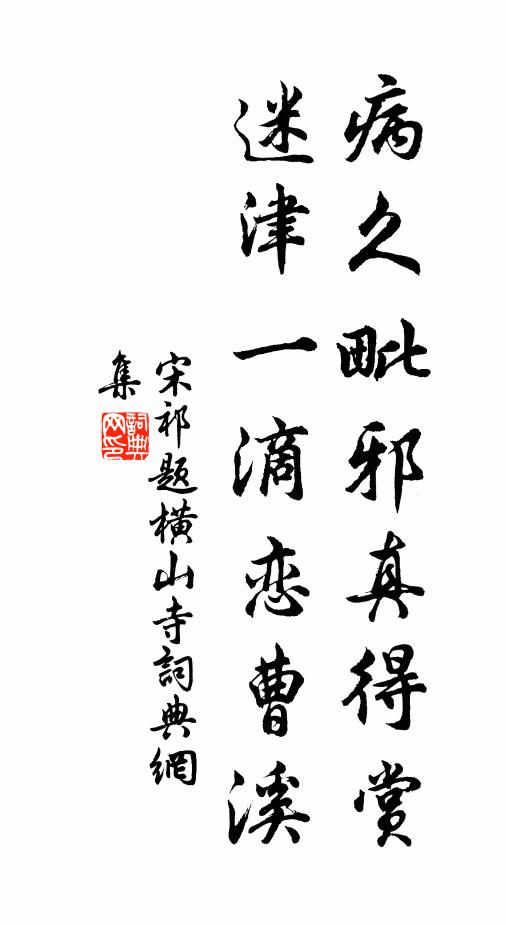 病久毗邪真得赏
迷津一滴恋曹溪
宋祁题横山寺詞典網
集
詞典网印